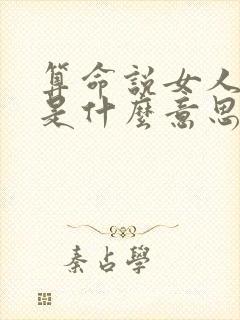 算命說女人
是什麼意思
秦占學